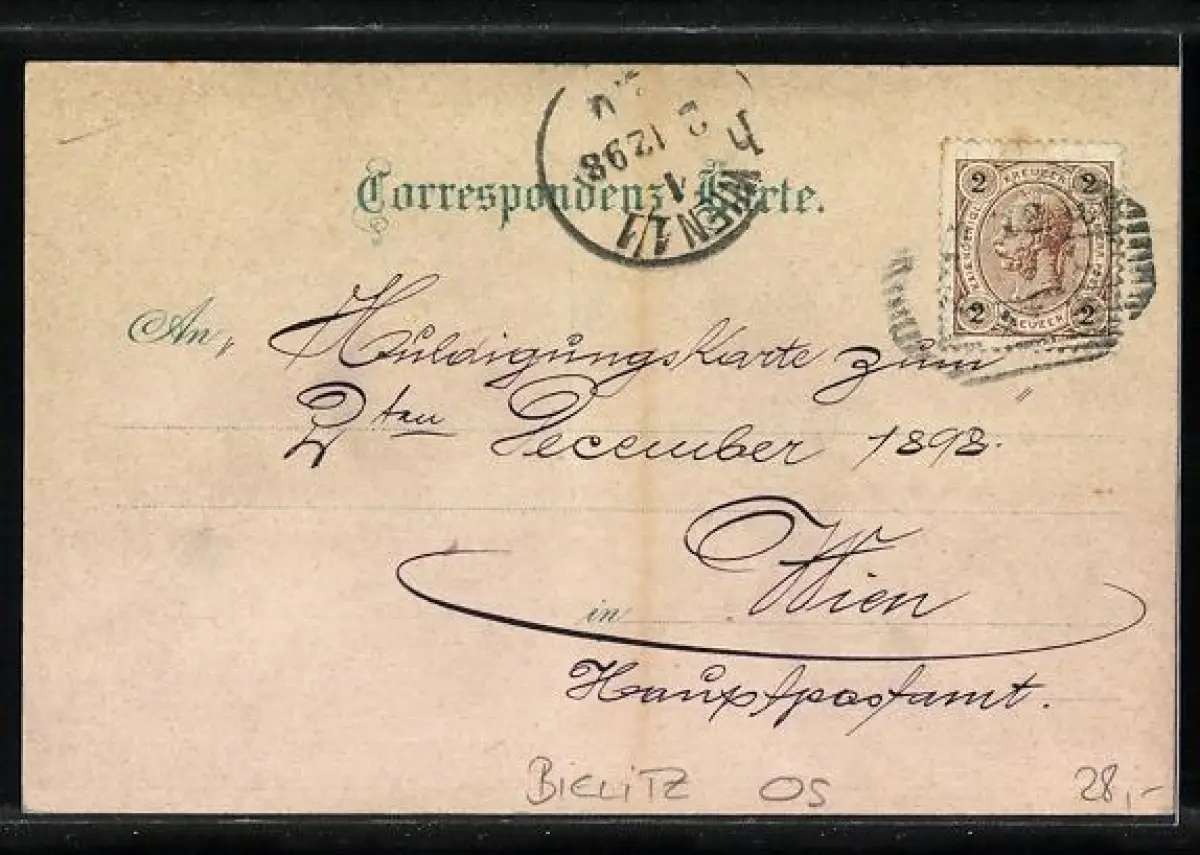 2 12 98
1
WIEN 1/1
Correspondenz-Karte.
2 KREUZER 2
2 KREUZER 2
An „Huldigungskarte zum
2ten December 1898.“
in Wien
Hauptpostamt.
BIELITZ OS 28,-